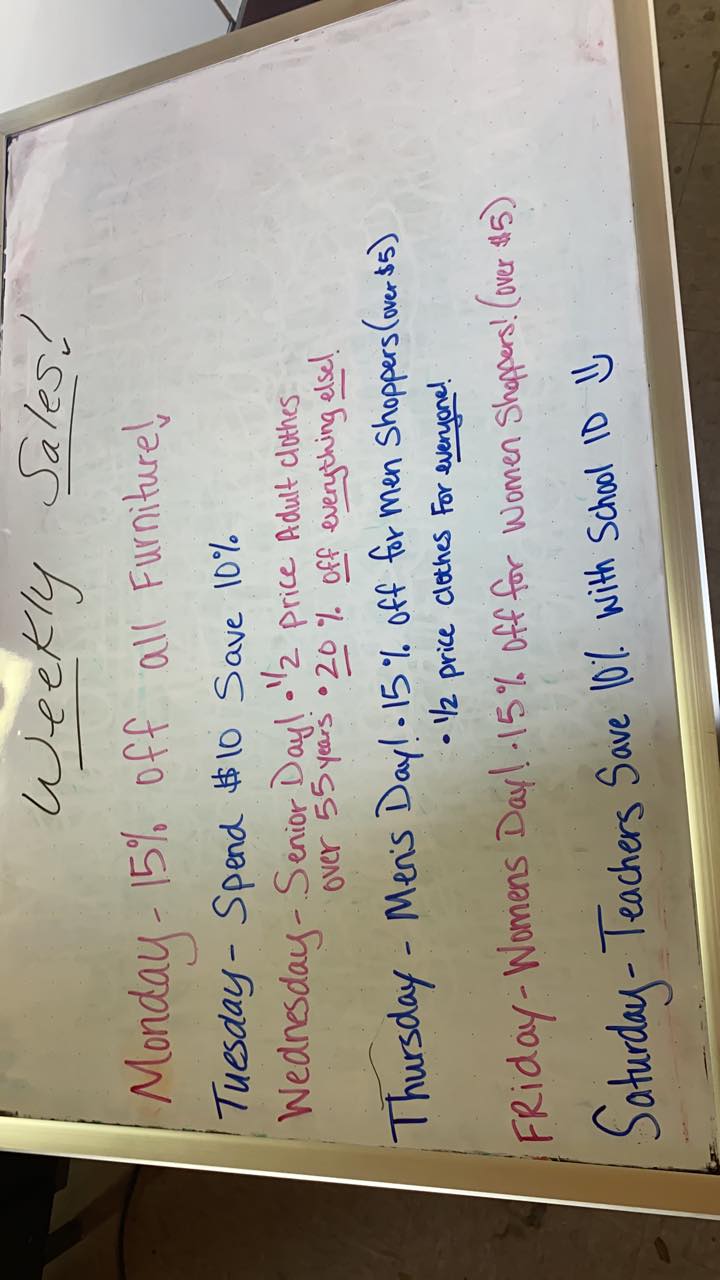 Weekly Sales!
Monday - 15% off all Furniture!
Tuesday - Spend $10 Save 10%
Wednesday - Senior Day! • 1/2 price Adult clothes
over 55 years • 20% off everything else!
Thursday - Men's Day! • 15% off for Men Shoppers (over $5)
• 1/2 price clothes For everyone!
FRiday - Womens Day! • 15% off for Women Shoppers! (over $5)
Saturday - Teachers Save 10% with School ID